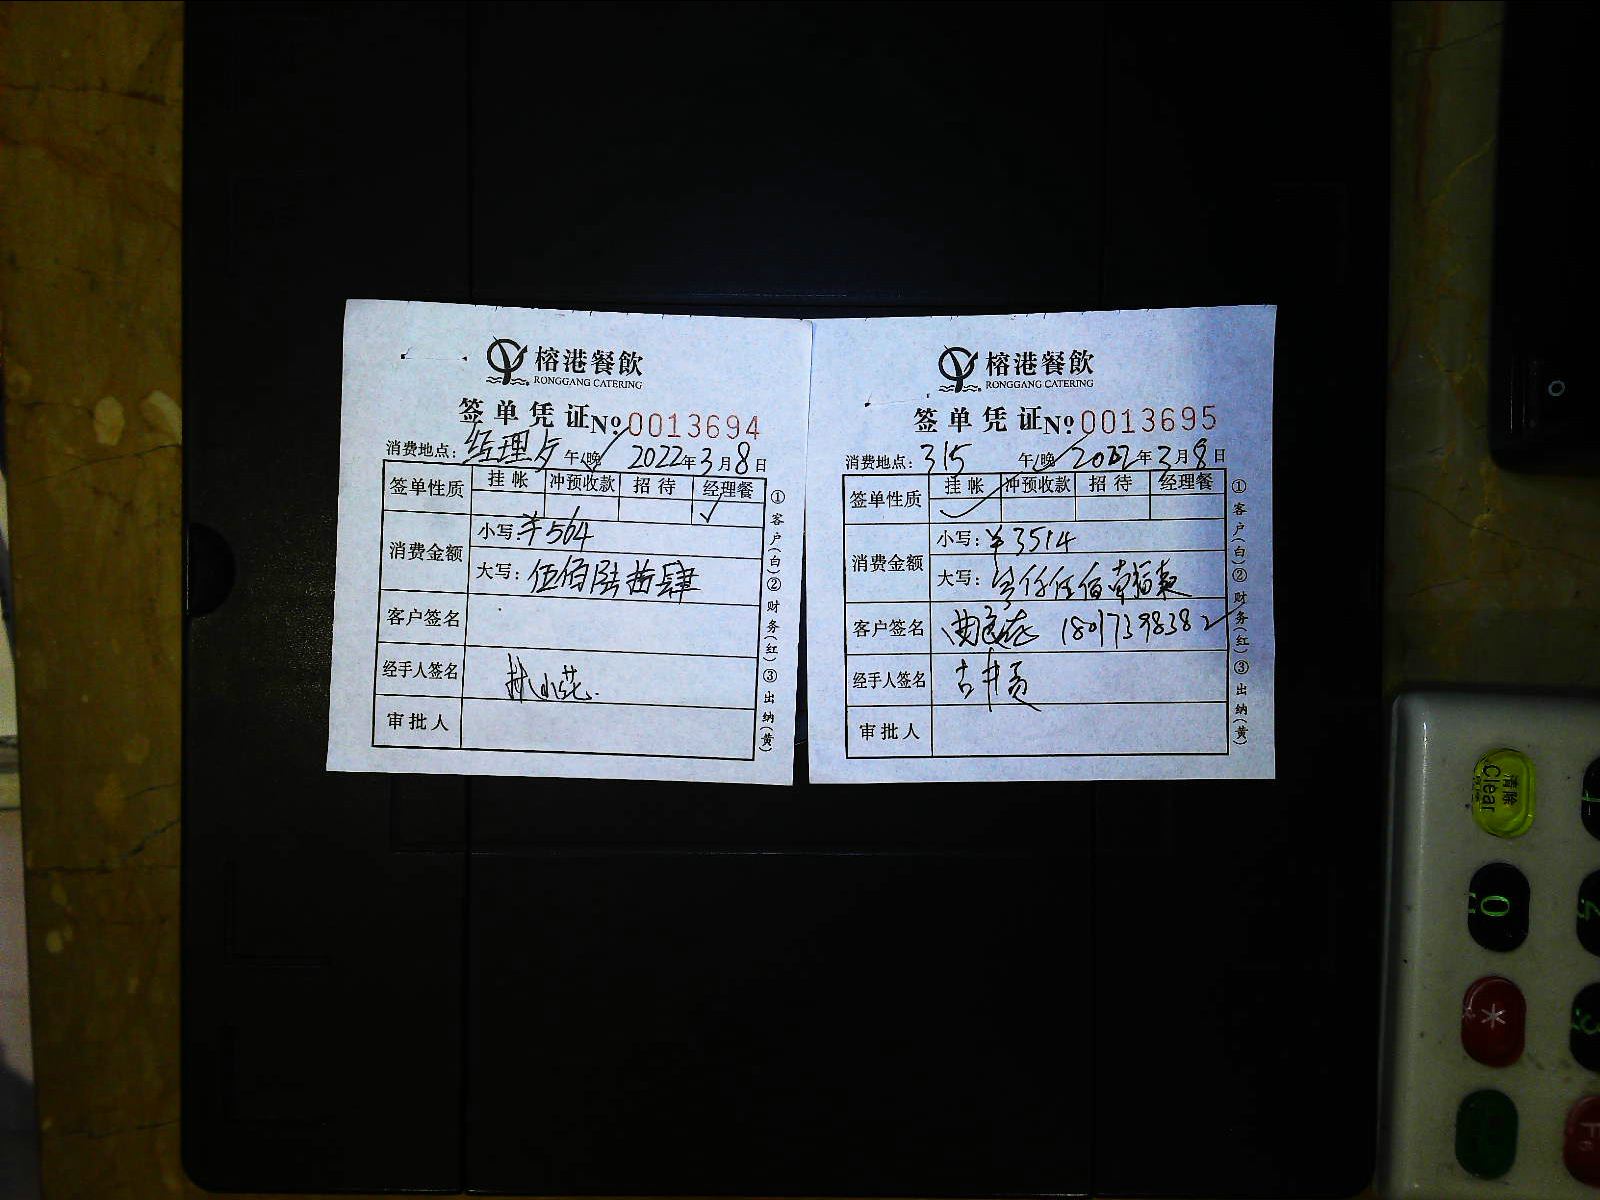 榕港餐飲
RONGGANG CATERING
签单凭证 No 0013694
消费地点: 经理 午/晚 2022年3月8日
签单性质 挂帐 冲预收款 招待 经理餐
消费金额 小写: ¥564
大写: 伍佰陆拾肆
客户签名
经手人签名 林小花.
审批人
①客户(白)②财务(红)③出纳(黄)
榕港餐飲
RONGGANG CATERING
签单凭证 No 0013695
消费地点: 315 午/晚 2022年3月8日
签单性质 挂帐 冲预收款 招待 经理餐
消费金额 小写: ¥3514
大写: 仟伍佰
客户签名 18017398382
经手人签名
审批人
①客户(白)②财务(红)③出纳(黄)
清除
Clear
0
*